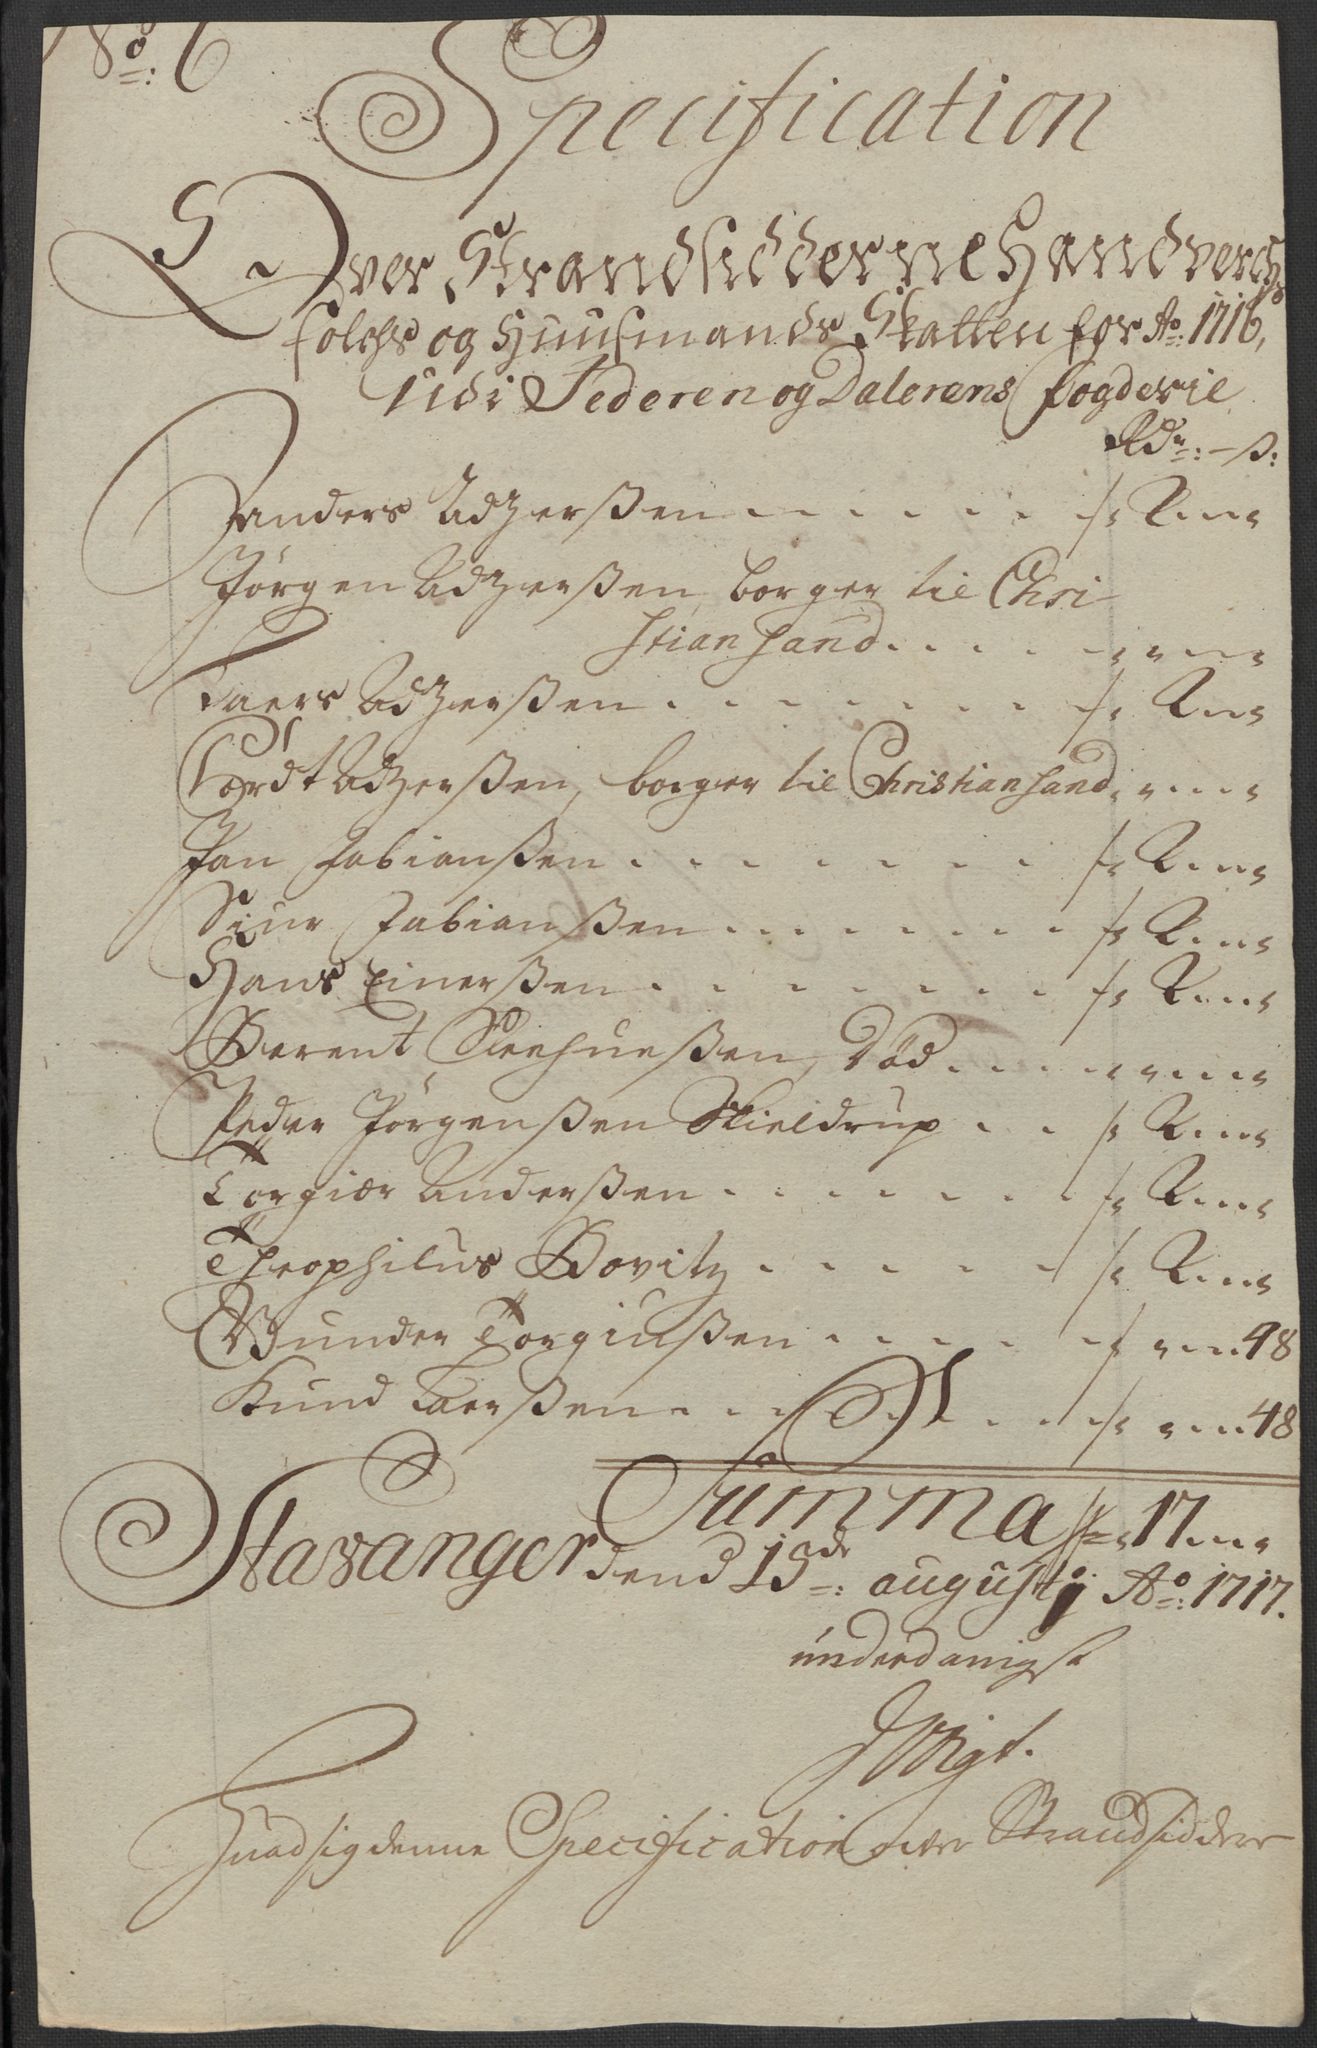 No: 6
Specification
Over Strandsidderne Handverchs
folchs og Huusmands Skatten for Ao: 1716,
udi Jederen og Dalerens fogderie
Rdr: - ß:
Anders Adzerßen
Jørgen Adzerßen borger til Chri
stiansand
Laers Adzerßen
Cordt Adzerßen, borger til Christiansand
Jan Fabianßen
Siur Fabianßen
Hans Einerßen
Berent, Død
Peder Jørgenßen Skieldrup
Torgier Anderßen
Theophilus Bovitz
Gunder Torgiußen 48
Knud Laerßen 48
Summa 17
Stavanger dend 15de: augustj Ao: 1717.
underdanigst
Hvad sig denne Specification over Strandsiddere